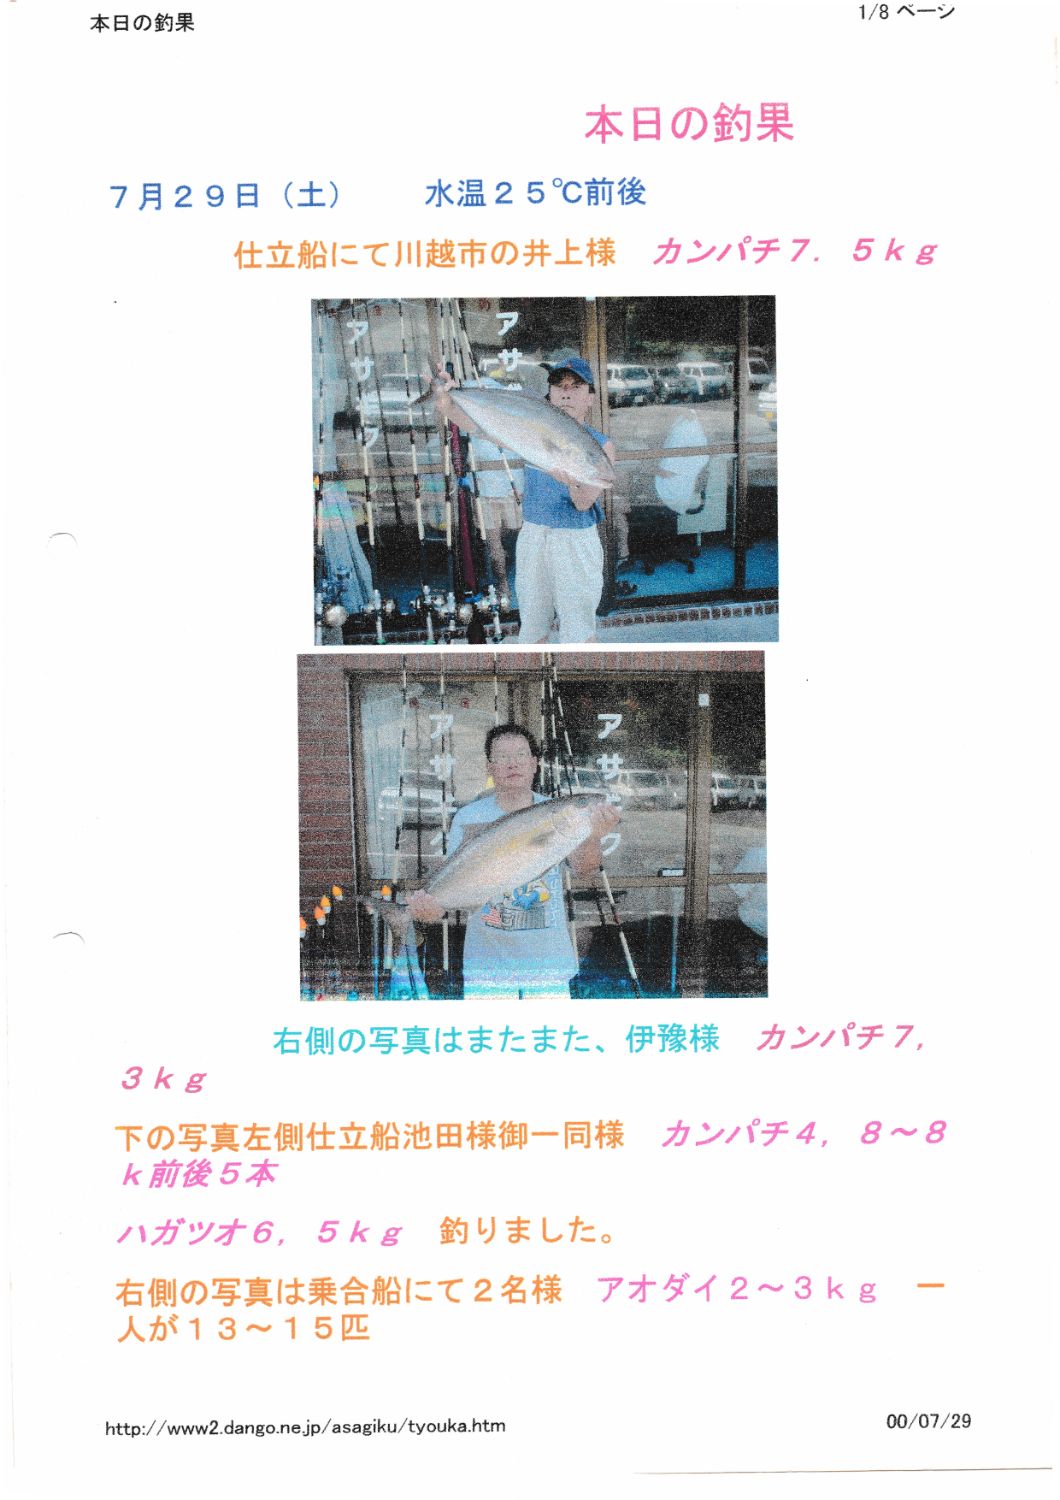 本日の釣果
1/8 ページ
本日の釣果
７月２９日（土） 水温２５℃前後
仕立船にて川越市の井上様 カンパチ７．５ｋｇ
アサ
アサ
アサ
アサ
右側の写真はまたまた、伊豫様 カンパチ７，
３ｋｇ
下の写真左側仕立船池田様御一同様 カンパチ４，８～８
ｋ前後５本
ハガツオ６，５ｋｇ 釣りました。
右側の写真は乗合船にて２名様 アオダイ２～３ｋｇ 一
人が１３～１５匹
http://www2.dango.ne.jp/asagiku/tyouka.htm
00/07/29